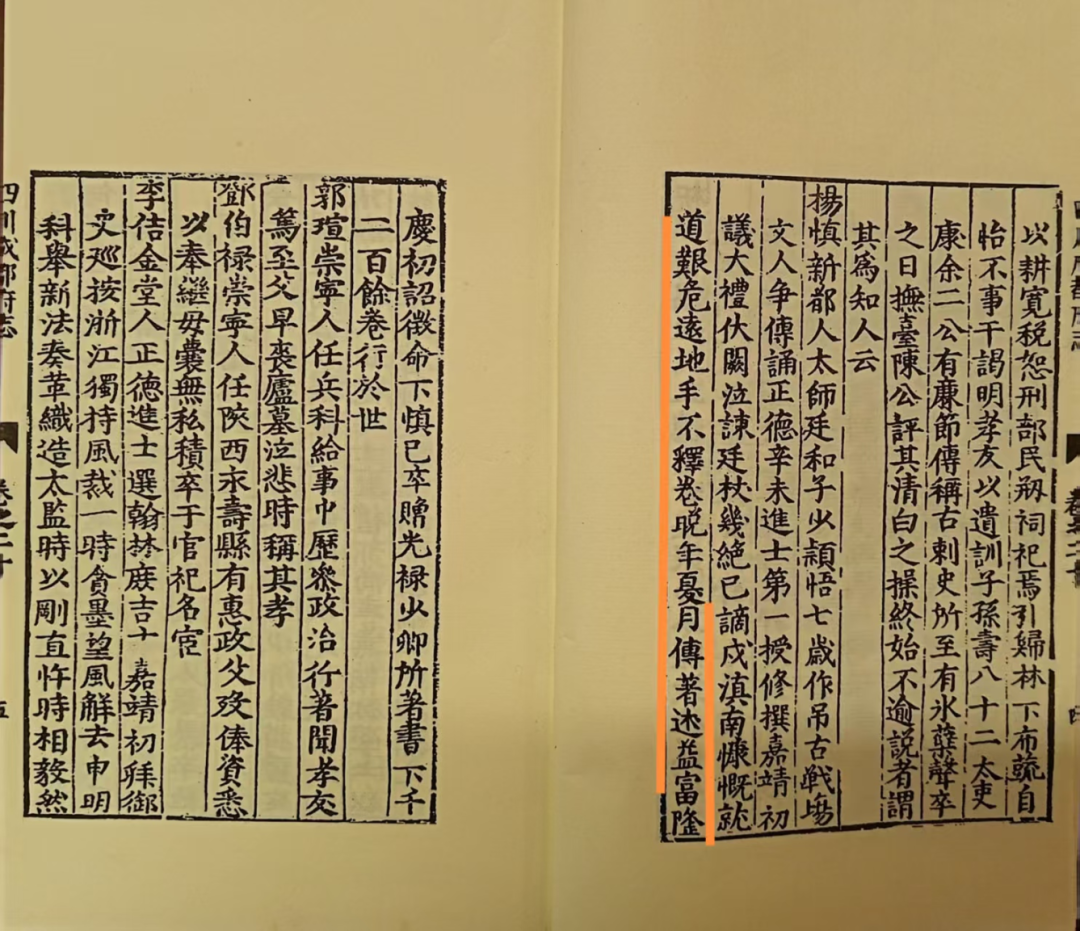 以耕寬稅恕刑部民剏祠祀焉引歸林下布蔬自
怡不事干謁明孝友以遺訓子孫壽八十二太吏
康余二公有廉節傳稱古刺史所至有氷蘗聲卒
之日撫臺陳公評其清白之操終始不逾說者謂
其爲知人云
楊慎新都人太師廷和子少穎悟七歲作吊古戰場
文人争傳誦正德辛未進士第一授修撰嘉靖初
議大禮伏闕泣諫廷杖幾絕已謫戍滇南慷慨就
道艱危遠地手不釋卷晚年憂月傳著述益富隆
慶初詔徵命下慎已卒贈光禄少卿所著書下千
二百餘卷行於世
郭瑄崇寧人任兵科給事中歷叅政治行著聞孝友
篤至父早喪廬墓泣悲時稱其孝
鄧伯禄崇寧人任陝西永壽縣有惠政父歿俸資悉
以奉繼母囊無私積卒于官祀名宦
李佶金堂人正德進士選翰林庶吉士嘉靖初拜御
史巡按浙江獨持風裁一時貪墨望風解去申明
科舉新法奏革織造太監時以剛直忤時相毅然
四川成都府志
卷之二十
五